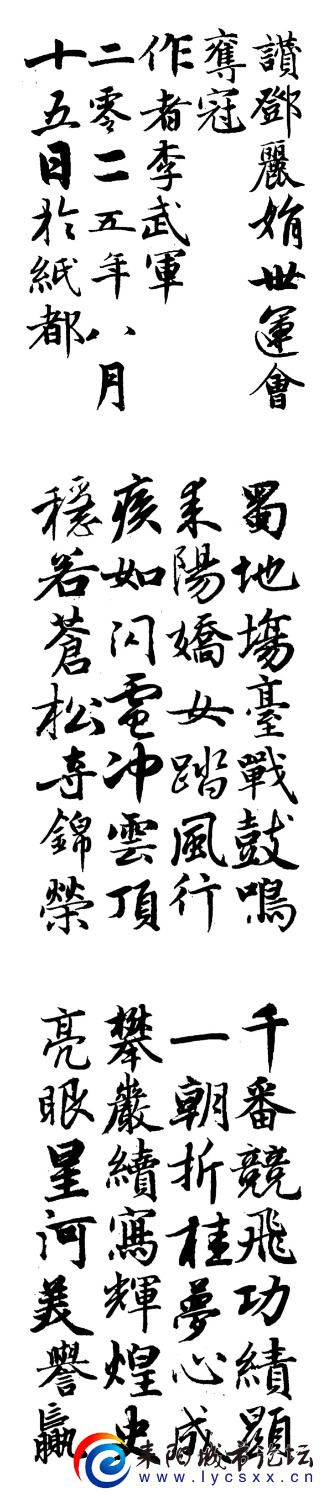 讚鄧麗娟世運會
奪冠
作者李武軍
二零二五年八月
十五日於紙都
蜀地塲臺戰鼓鳴
耒陽嬌女踏風行
疾如闪電冲雲頂
穩若蒼松奪錦榮
千番競飛功績顯
一朝折桂夢心成
攀巖續寫輝煌史
亮眼星河美譽贏
耒陽城者论坛
www.lycsxx.cn